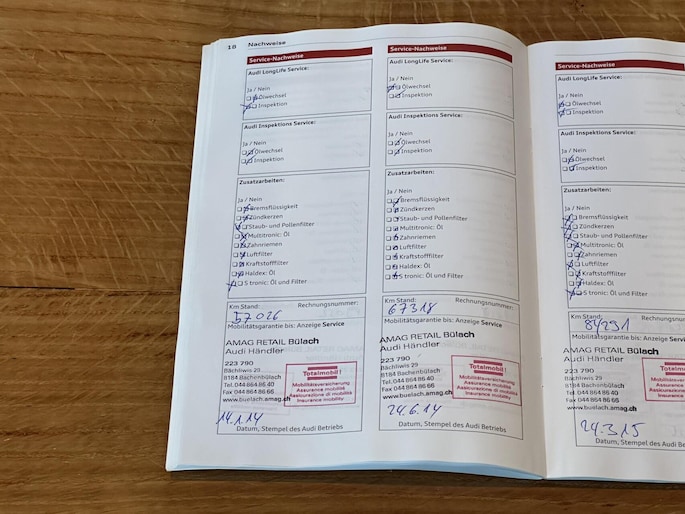 18 Nachweise
Service-Nachweise
Audi LongLife Service:
Ja / Nein
Ölwechsel
Inspektion
Audi Inspektions Service:
Ja / Nein
Ölwechsel
Inspektion
Zusatzarbeiten:
Ja / Nein
Bremsflüssigkeit
Zündkerzen
Staub- und Pollenfilter
Multitronic: Öl
Zahnriemen
Luftfilter
Kraftstofffilter
Haldex: Öl
S tronic: Öl und Filter
Km Stand: Rechnungsnummer:
57026
Mobilitätsgarantie bis: Anzeige Service
AMAG RETAIL Bülach
Audi Händler
223 790
Bächliwis 29
8184 Bachenbülach
Tel. 044 864 86 40
Fax 044 864 86 66
www.buelach.amag.ch
Totalmobil!
Mobilitätsversicherung
Assurance mobilité
Assicurazione di mobilità
Insurance mobility
14.1.14
Datum, Stempel des Audi Betriebs
Service-Nachweise
Audi LongLife Service:
Ja / Nein
Ölwechsel
Inspektion
Audi Inspektions Service:
Ja / Nein
Ölwechsel
Inspektion
Zusatzarbeiten:
Ja / Nein
Bremsflüssigkeit
Zündkerzen
Staub- und Pollenfilter
Multitronic: Öl
Zahnriemen
Luftfilter
Kraftstofffilter
Haldex: Öl
S tronic: Öl und Filter
Km Stand: Rechnungsnummer:
67318
Mobilitätsgarantie bis: Anzeige Service
AMAG RETAIL Bülach
Audi Händler
223 790
Bächliwis 29
8184 Bachenbülach
Tel. 044 864 86 40
Fax 044 864 86 66
www.buelach.amag.ch
Totalmobil!
Mobilitätsversicherung
Assurance mobilité
Assicurazione di mobilità
Insurance mobility
24.6.14
Datum, Stempel des Audi Betriebs
Service-Nachweise
Audi LongLife Service:
Ja / Nein
Ölwechsel
Inspektion
Audi Inspektions Service:
Ja / Nein
Ölwechsel
Inspektion
Zusatzarbeiten:
Ja / Nein
Bremsflüssigkeit
Zündkerzen
Staub- und Pollenfilter
Multitronic: Öl
Zahnriemen
Luftfilter
Kraftstofffilter
Haldex: Öl
S tronic: Öl und Filter
Km Stand: Rechnungsnummer:
84291
Mobilitätsgarantie bis: Anzeige Service
AMAG RETAIL Bülach
Audi Händler
223 790
Bächliwis 29
8184 Bachenbülach
Tel. 044 864 86 40
Fax 044 864 86 66
www.buelach.amag.ch
24.3.15
Datum, Stempel des Audi Betriebs